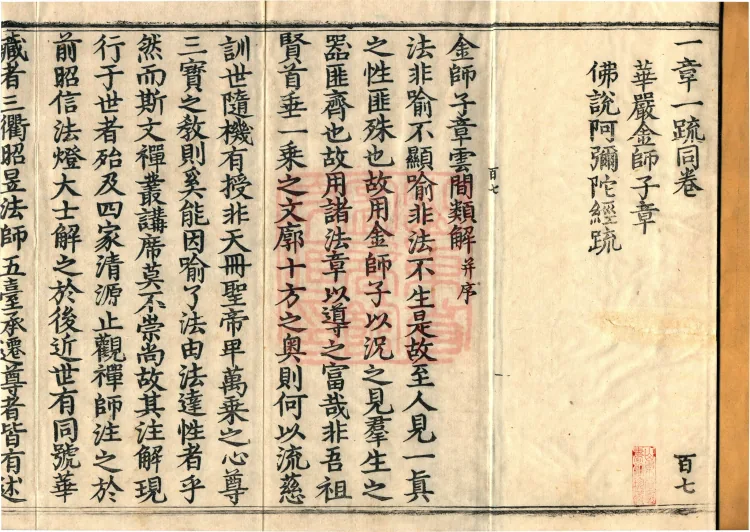 一章一䟽同卷
華嚴金師子章
佛說阿彌陀經䟽
百七
百七
金師子章雲間類解并序
法非喻不顯喻非法不生是故至人見一真
之性匪殊也故用金師子以況之見羣生之
噐匪齊也故用諸法章以導之富哉非吾祖
賢首垂一乘之文廓十方之奥則何以流慈
訓世隨機有授非天冊聖帝甲萬乘之心尊
三寳之教則奚能因喻了法由法達性者乎
然而斯文禪叢講席莫不崇尚故其注解現
行于世者殆及四家清源止觀禪師注之於
前昭信法燈大士解之於後近世有同號華
藏者三衢昭昱法師五臺承遷尊者皆有述